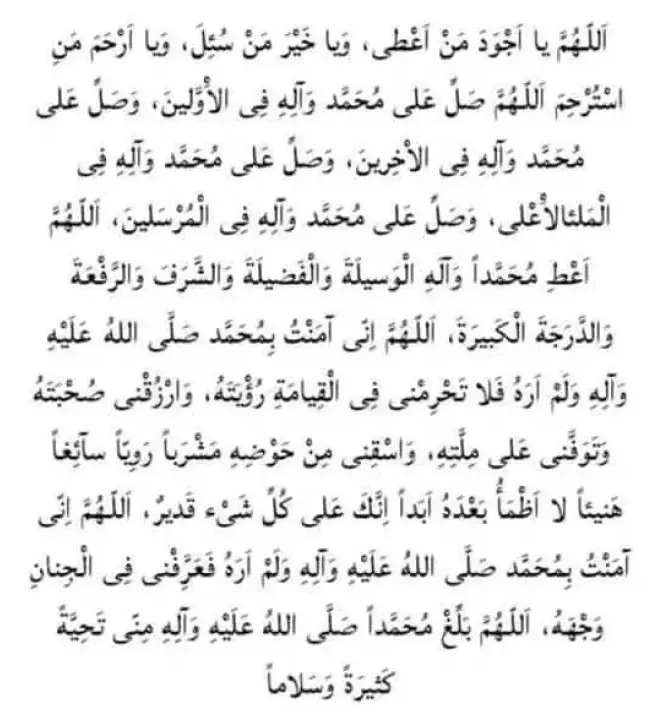 اَللّهُمَّ يا اَجْوَدَ مَنْ اَعْطى، وَيا خَيْرَ مَنْ سُئِلَ، وَيا اَرْحَمَ مَنِ
اسْتُرْحِمَ اَللّهُمَّ صَلِّ عَلى مُحَمَّد وَآلِهِ فِى الاَْوَّلينَ، وَصَلِّ عَلى
مُحَمَّد وَآلِهِ فِى الاْخِرينَ، وَصَلِّ عَلى مُحَمَّد وَآلِهِ فِى
الْمَلئالاَْعْلى، وَصَلِّ عَلى مُحَمَّد وَآلِهِ فِى الْمُرْسَلينَ، اَللّهُمَّ
اَعْطِ مُحَمَّداً وَآلَهِ الْوَسيلَةَ وَالْفَضيلَةَ وَالشَّرَفَ وَالرَّفْعَةَ
وَالدَّرَجَةَ الْكَبيرَةَ، اَللّهُمَّ اِنّى آمَنْتُ بِمُحَمَّد صَلَّى اللهُ عَلَيْهِ
وَآلِهِ وَلَمْ اَرَهُ فَلا تَحْرِمْنى فِى الْقِيامَةِ رُؤْيَتَهُ، وَارْزُقْنى صُحْبَتَهُ
وَتَوَفَّنى عَلى مِلَّتِهِ، وَاسْقِنى مِنْ حَوْضِهِ مَشْرَباً رَوِيّاً سآئِغاً
هَنيئاً لا اَظْمَأُ بَعْدَهُ اَبَداً اِنَّكَ عَلى كُلِّ شَىْء قَديرٌ، اَللّهُمَّ اِنّى
آمَنْتُ بِمُحَمَّد صَلَّى اللهُ عَلَيْهِ وَآلِهِ وَلَمْ اَرَهُ فَعَرِّفْنى فِى الْجِنانِ
وَجْهَهُ، اَللّهُمَّ بَلِّغْ مُحَمَّداً صَلَّى اللهُ عَلَيْهِ وَآلِهِ مِنّى تَحِيَّةً
كَثيرَةً وَسَلاماً